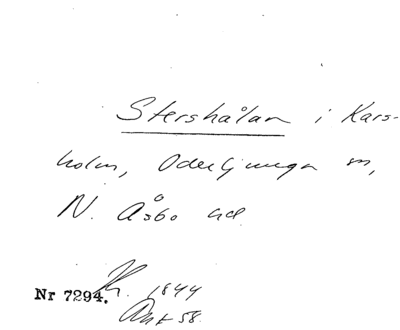 Stershålan i Kars-
holm, Oderljunga sn,
N. Åsbo hd
Nr 7294. 1844
Ant 58.